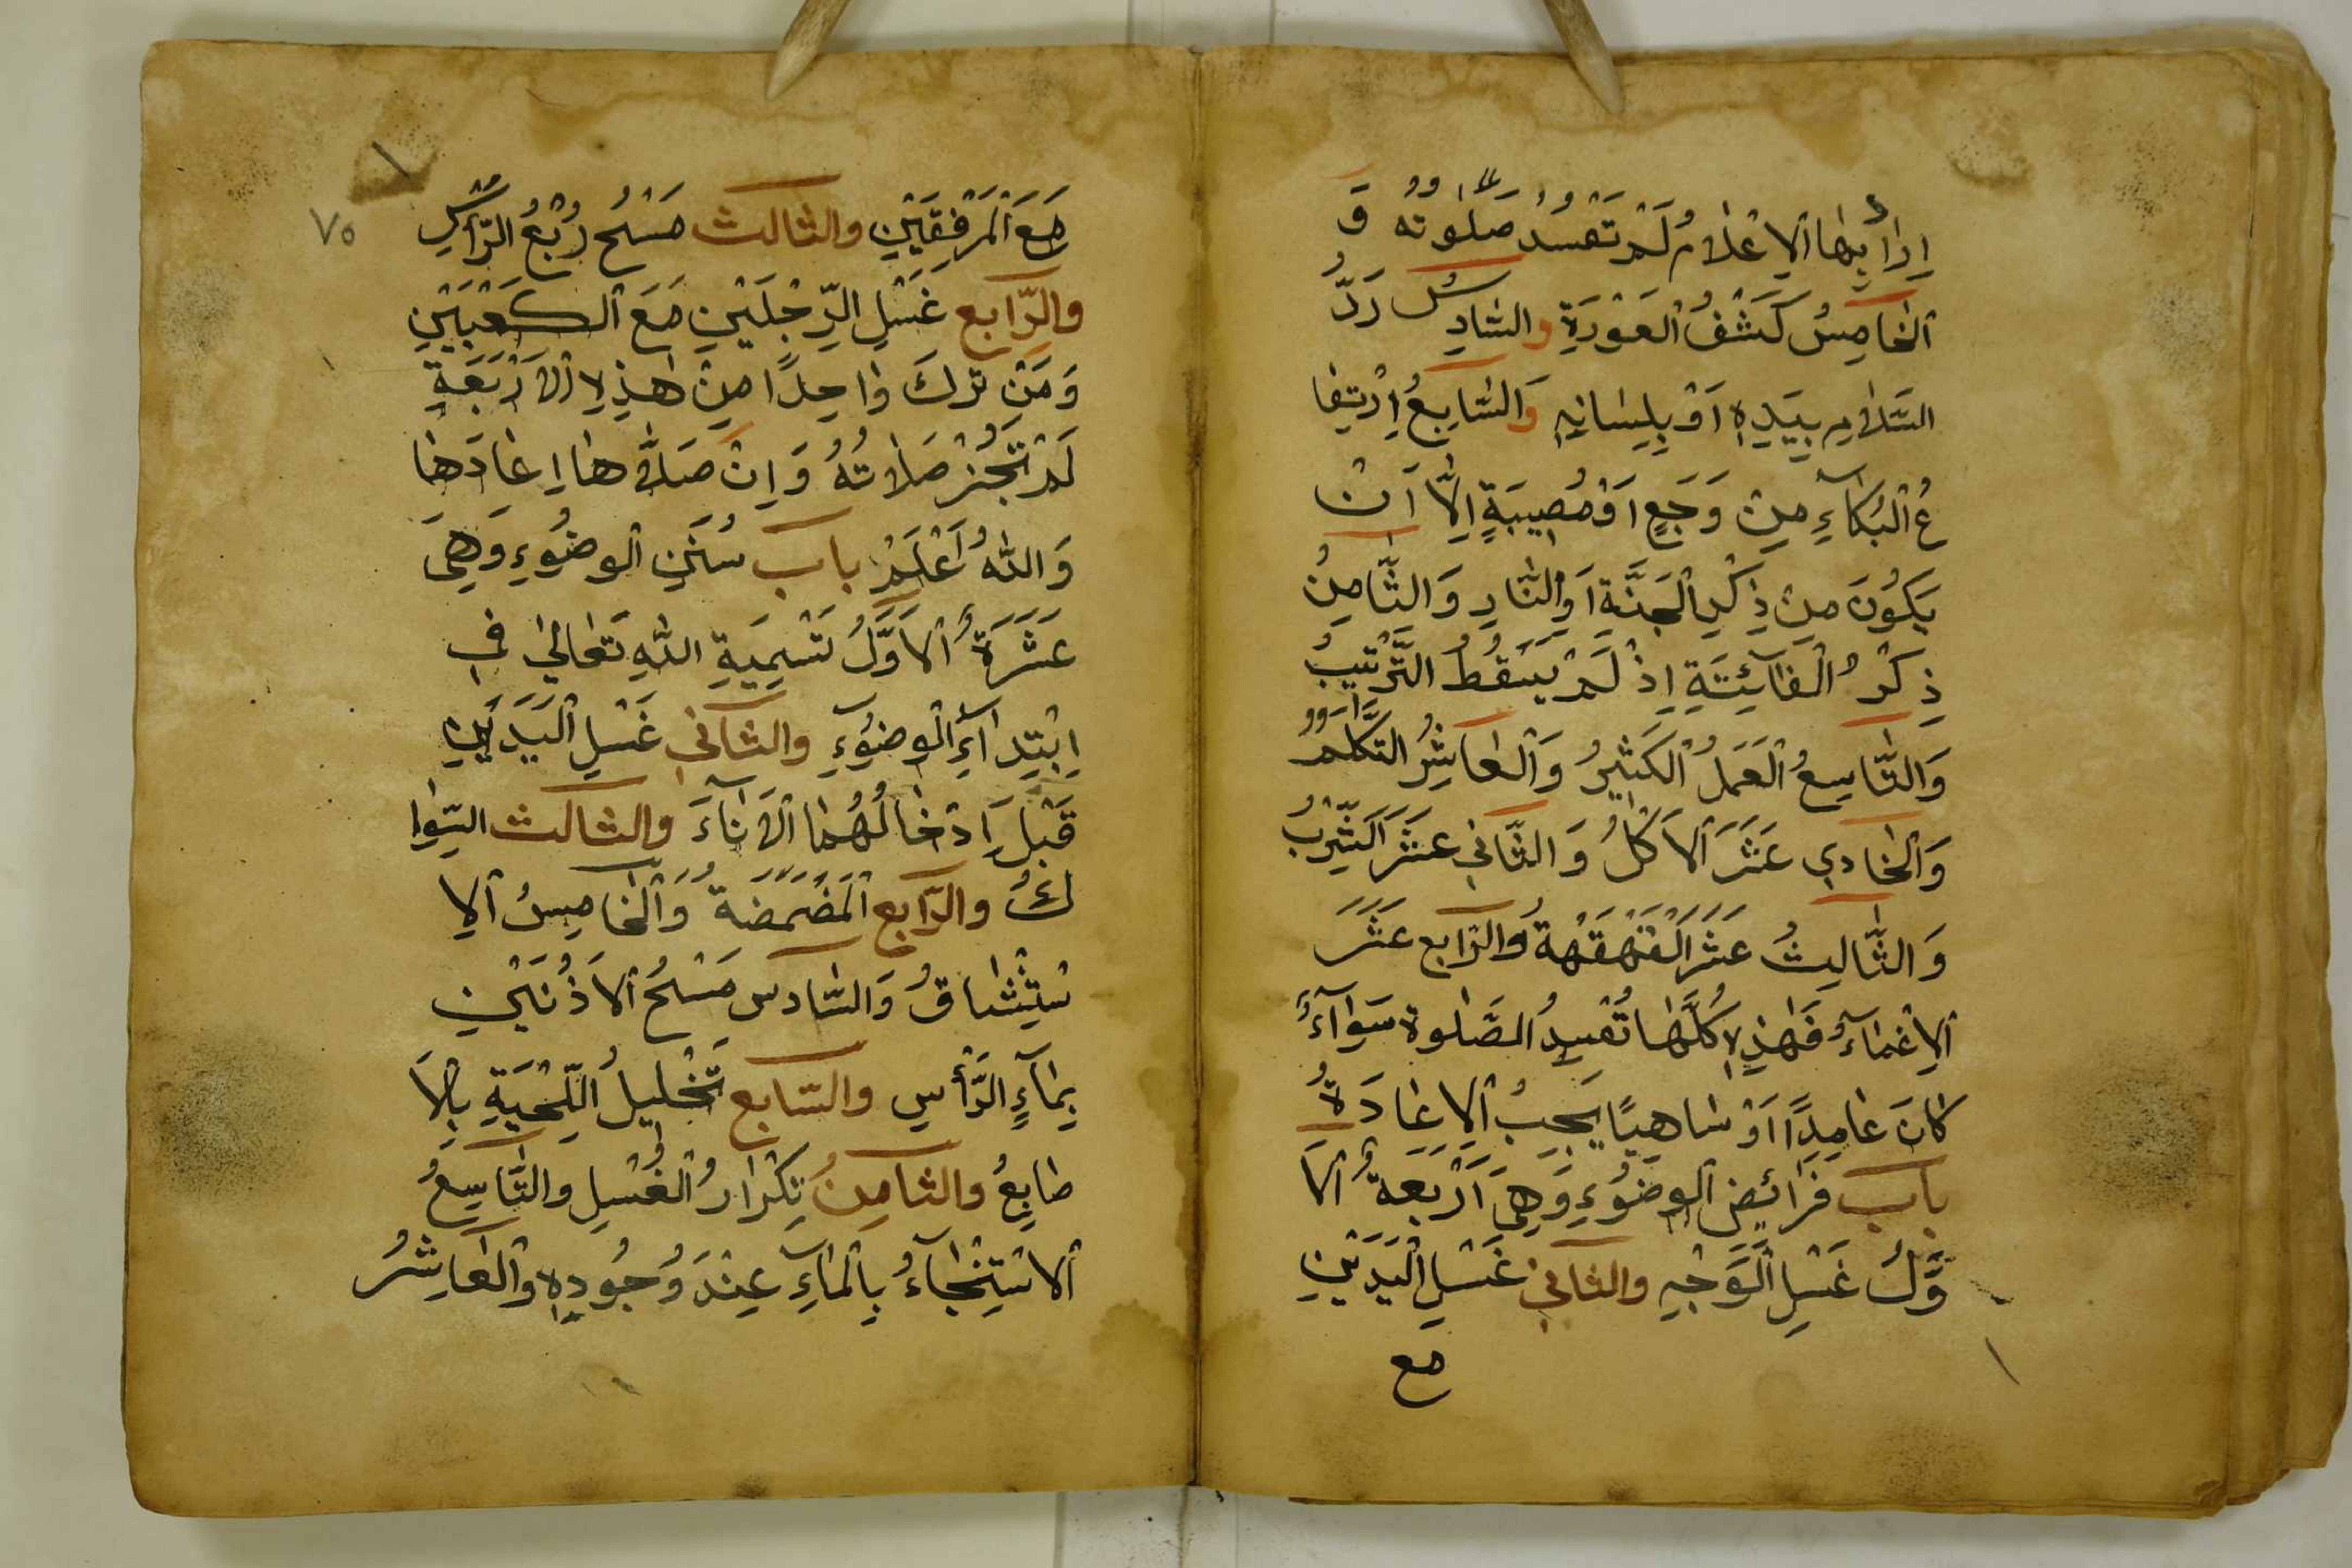 اِرَادَ بِهَا اَلْاِعْلَامُ لَمْ تَفْسُدْ صَلٰوتُهُ وَ
اَلْخَامِسُ كَشْفُ اَلْعَوْرَةِ وَالسَّادِسُ رَدُّ
السَّلَامِ بِيَدِهٖ اَوْ بِلِسَانِهٖ وَالسَّابِعُ اِرْتِفَا
عُ اَلْبُكَآءِ مِنْ وَجَعٍ اَوْ مُصِيبَةٍ اِلَّا اَنْ
يَكُونَ مِنْ ذِكْرِ اَلْجَنَّةِ اَوِ النَّارِ وَالثَّامِنُ
ذِكْرُ اَلْفَآئِتَةِ اِذْ لَمْ يَسْقُطُ التَّرْتِيبُ
وَالتَّاسِعُ اَلْعَمَلُ اَلْكَثِيرُ وَالْعَاشِرُ التَّكَلُّمُ
وَالْحَادِي عَشَرَ اَلْاَكْلُ وَالثَّانِي عَشَرَ اَلشُّرْبُ
وَالثَّالِثُ عَشَرَ اَلْقَهْقَهَةُ وَالرَّابِعُ عَشَرَ
اَلْاِغْمَآءُ فَهٰذِهٖ كُلُّهَا تُفْسِدُ الصَّلٰوةَ سَوَآءٌ
كَانَ عَامِدًا اَوْ سَاهِيًا يَجِبُ اَلْاِعَادَةُ
باب فَرَائِضِ اَلْوُضُوءِ وَهِيَ اَرْبَعَةٌ اَلْاَ
وَّلُ غَسْلِ اَلْوَجْهِ وَالثَّانِي غَسْلِ اَلْيَدَيْنِ
مع
٧٥
مَعَ اَلْمَرْفِقَيْنِ وَالثَّالِثُ مَسْحُ رُبْعُ الرَّأْسِ
وَالرَّابِعُ غَسْلِ الرِّجْلَيْنِ مَعَ اَلْكَعْبَيْنِ
وَمَنْ تَرَكَ وَاحِدًا مِنْ هٰذِهِ اَلْاَرْبَعَةِ
لَمْ تَجُزْ صَلَاتُهُ وَاِنْ صَلَّاهَا اِعَادَهَا
وَاللّٰهُ اَعْلَمُ باب سُنَنِ اَلْوُضُوءِ وَهِيَ
عَشَرَةٌ اَلْاَوَّلُ تَسْمِيَةِ اللّٰهِ تَعَالٰي فِي
اِبْتِدَآءِ اَلْوُضُوءِ وَالثَّانِي غَسْلِ اَلْيَدَيْنِ
قَبْلَ اِدْخَالُهُمَا اَلْاَنَآءَ وَالثَّالِثُ السِّوَا
كُ وَالرَّابِعُ اَلْمَضْمَضَةُ وَالْخَامِسُ اَلْاِ
سْتِنْشَاقُ وَالسَّادِسُ مَسْحُ اَلْاُذُنَيْنِ
بِمَآءِ الرَّأْسِ وَالسَّابِعُ تَخْلِيلُ اللِّحْيَةِ بِالْاَ
صَابِعُ وَالثَّامِنُ تِكْرَارُ اَلْغُسْلِ وَالتَّاسِعُ
اَلْاسْتِنْجَآءُ بِالْمَآءِ عِنْدَ وُجُودِهٖ وَالْعَاشِرُ